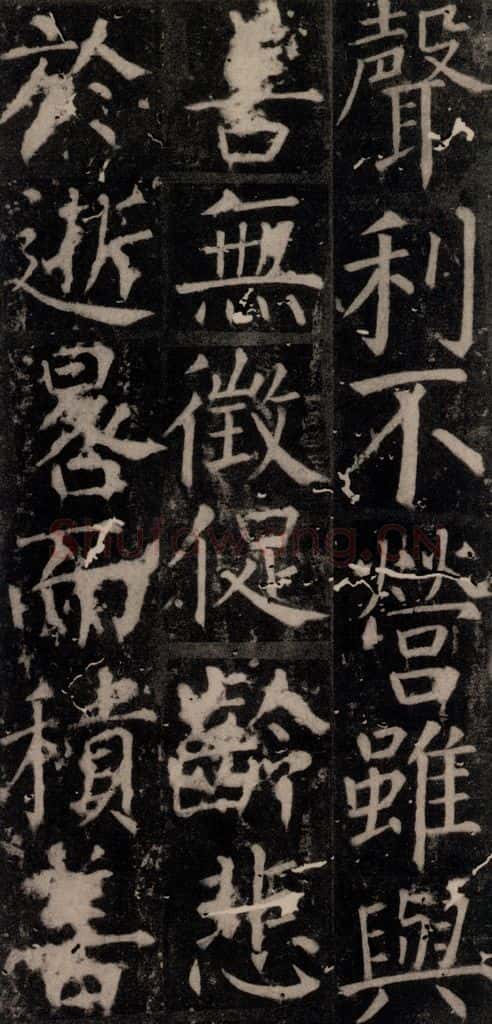 聲利不營雖與
善無徵促齡悲
於逝晷而積善
Shufawang.CN